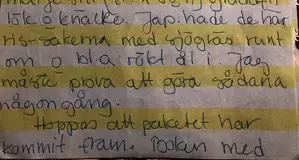 lök o knäcke. Jap. hade de här
ris-sakerna med sjögräs runt
om o bl.a rökt ål i. Jag
måste prova att göra sådana
någon gång.
Hoppas att paketet har
kommit fram. Boken med